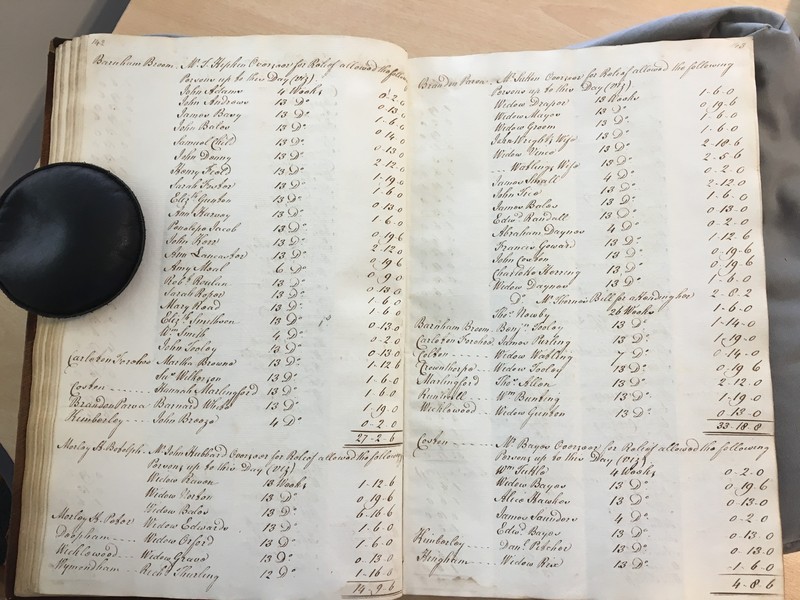 142
Barnham Broom. Mr. Hipkin Overseer for Relief allowed the following
Persons up to this Day (viz)
John Adams 4 Weeks 0-2-0
John Andrews 13 Do
James Bary 13 Do 1-6-0
John Bales 13 Do
Samuel Child 13 Do
John Dunny 13 Do
Henry Feard 13 Do 2-12-0
Sarah Foster 13 Do 1-19-0
Elizth. Gunton 13 Do 1-6-0
Ann Harvey 13 Do 0-13-0
Penelope Jacob 13 Do 1-6-0
John Kerr 13 Do 0-19-6
Ann Lancaster 13 Do 2-12-0
Amy Moul 6 Do
Robt. Rudun 13 Do 0-9-0
Sarah Roper 13 Do 0-13-0
Mary Head 13 Do 1-6-0
Elizth. Smithson 13 Do 1-6-0
Wm. Smith 4 Do
John Tooley 13 Do
Carleton Forehoe Martha Browne 13 Do 1-12-6
Sus. Wilkerson 13 Do
Coston Hannah Marlingford 13 Do 1-6-0
Brandon Parva Barnard White 13 Do 1-19-0
Kimberley John Breeze 4 Do 0-2-0
27-2-6
Morley St. Botolph. Mr. John Hubbard Overseer for Relief allowed the following
Persons up to this Day (viz)
Widow Beeven 13 Weeks 1-12-6
Widow Dexton 13 Do 0-19-6
Widow Bales 13 Do 6-16-6
Morley St. Peter Widow Edwards 13 Do 1-6-0
Deopham Widow Orford 13 Do 1-6-0
Wicklewood Widow Geand 13 Do 0-13-0
Wymondham Richd. Thurling 12 Do 1-16-0
14-9-6
143
Brandon Parva. Mr. Hutten Overseer for Relief allowed the following
Persons up to this Day (viz)
Widow Draper 13 Weeks 1-6-0
Widow Mayor 13 Do 0-19-6
Widow Groom 13 Do 1-6-0
John Wright's Wife 13 Do 1-6-0
Widow Vince 13 Do 2-18-6
Watling's Wife 13 Do 2-5-6
James Small 4 Do 0-2-0
John Tice 13 Do 2-12-0
James Bales 13 Do 1-6-0
Edwd. Randall 13 Do 0-13-0
Abraham Daynes 4 Do 0-2-0
Francis Goward 13 Do 1-12-6
John Coston 13 Do 0-19-6
Charlotte Herring 13 Do 0-19-6
Widow Daynes 13 Do 1-6-0
Do Mr. Thornes Bill for attending her 2-8-2
Thos. Newby 26 Weeks 1-6-0
Barnham Broom Benjn. Tooley 13 Do 1-14-0
Carleton Forehoe James Kerling 13 Do 1-19-0
Colton Widow Watling 7 Do 0-14-0
Crownthorpe Widow Tooley 13 Do 0-19-6
Marlingford Thos. Allen 13 Do 2-12-0
Runhall Wm. Bunting 13 Do 1-19-0
Wicklewood Widow Gunton 13 Do 0-13-0
33-18-8
Coston Mr. Bayes Overseer for Relief allowed the following
Persons up to this Day (viz)
Wm. Tuttle 4 Weeks 0-2-0
Widow Bayes 13 Do 0-19-6
Alice Hawkes 13 Do 0-13-0
James Saunders 4 Do 0-2-0
Edwd. Bayes 13 Do 0-13-0
Kimberley Danl. Pitcher 13 Do 0-13-0
Hingham Widow Rix 13 Do 1-6-0
4-8-6